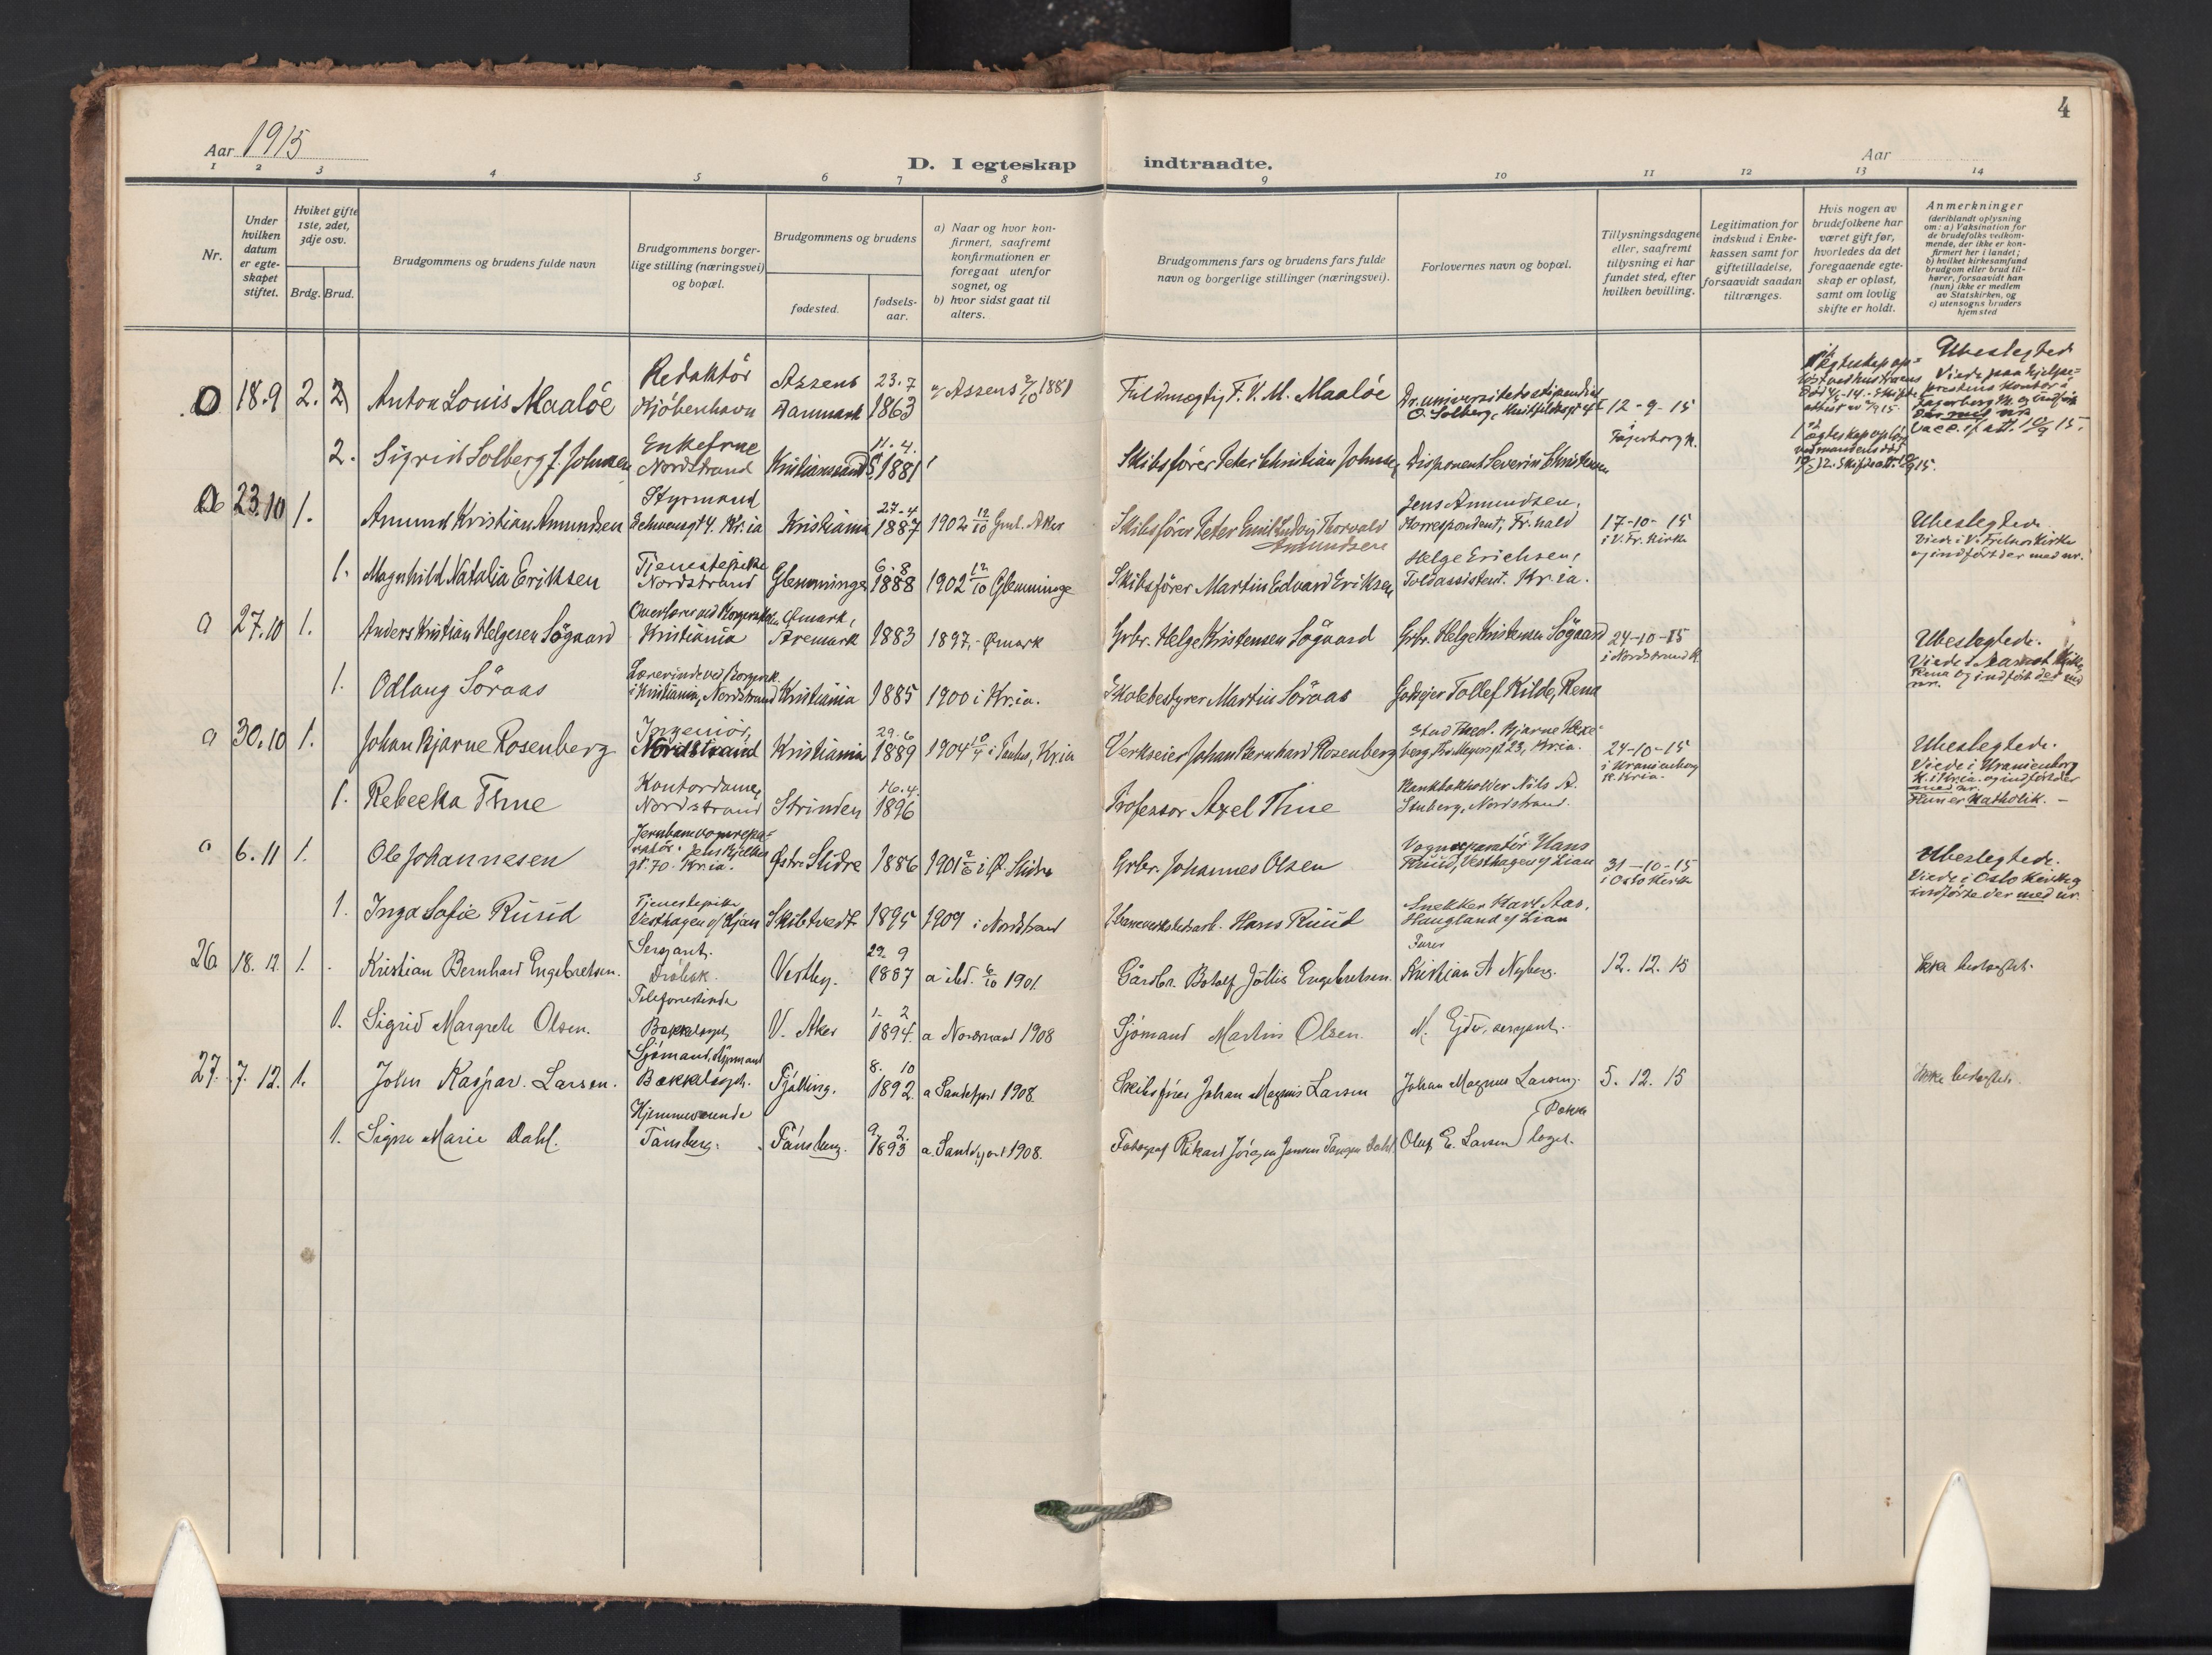 4
Aar 1915
D. I egteskap indtraadte.
Aar
1 2 3 4 5 6 7 8 9 10 11 12 13 14
Nr.
Under hvilken datum er egteskapet stiftet.
Hviket gifte 1ste, 2det, 3dje osv.
Brdg. Brud.
Brudgommens og brudens fulde navn
Brudgommens borgerlige stilling (næringsvei) og bopæl.
Brudgommens og brudens
fødested.
fødselsaar.
a) Naar og hvor konfirmert, saafremt konfirmationen er foregaat utenfor sognet, og
b) hvor sidst gaat til alters.
Brudgommens fars og brudens fars fulde navn og borgerlige stillinger (næringsvei).
Forlovernes navn og bopæl.
Tillysningsdagene eller, saafremt tillysning ei har fundet sted, efter hvilken bevilling.
Legitimation for indskud i Enkekassen samt for giftetilladelse, forsaavidt saadan tiltrænges.
Hvis nogen av brudefolkene har været gift før, hvorledes da det foregaaende egteskap er opløst, samt om lovlig skifte er holdt.
Anmerkninger (deriblandt oplysning om: a) Vaksination for de brudefolks vedkommende, der ikke er konfirmert her i landet; b) hvilket kirkesamfund brudgom eller brud tilhører, forsaavidt han (hun) ikke er medlem av Statskirken, og c) utensogns bruders hjemsted
18.9 2. Anton Louis Maalöe Redaktör Kjöbenhavn Assens Danmark 23.7 1863 Assens 2/10 1881 Fuldmægtig F. V. M. Maalöe Dr. universitetsstipendiat O. Solberg, 12-9-15 i Fagerborg K. Ubeslegted
2. Sigrid Solberg f. Johnsen Enkefrue Nordstrand Kristianssand S. 11.4. 1881 Skibsförer Peter Christian Johnsen Disponent Severin Christensen
23.10 1. Amund Kristian Amundsen Styrmand Kr.ia Kristiania 27-4 1887 1902 12/10 Gml. Aker Skibsförer Peter Emil Ludvig Thorvald Amundsen Jens Amundsen, Korrespondent, Fr.hald 17-10-15 i V. Fr. Kirke Ubeslegtede Viede i V. Frikirke og indfört der med nr.
1. Magnhild Natalia Eriksen Tjenestepike Nordstrand Glemminge 6-8 1888 1902 12/10 Glemminge Skibsförer Martin Edvard Eriksen Helge Erichsen, Toldassistent. Kr.ia.
a 27.10 1. Anders Kristian Helgesen Sögaard Kristiania Ømark, Aremark 1883 1897, Ømark Grbr. Helge Kristensen Sögaard Grbr. Helge Kristensen Sögaard 24-10-15 i Nordstrand K. Ubeslegtede.
1. Odlaug Söraas Lærerinde ved Borgersk. i Kristiania, Nordstrand Kristiania 1885 1900 i Kr.ia. Skolebestyrer Martin Söraas Gaardeier Tollef Kilde, Rena
a 30.10 1. Johan Bjarne Rosenberg Ingeniör, Nordstrand Kristiania 29.6 1889 1904 10/4 i Paulus, Kr.ia Verkseier Johan Bernhard Rosenberg Stud. Theol. Bjarne 23, Kr.ia. 24-10-15 i Uranienborg K. Kria. Ubeslegtede. Viede i Uranienborg K. i Kria. og indfört der med nr. Hun er Katholik. -
1. Rebecka Thue Kontordame, Nordstrand Strinden 16.4. 1896 Professor Axel Thue Bankbokholder Nils A. Nordstrand.
a 6.11 1. Ole Johannesen gt. 70. Kr.ia. Østre Slidre 1886 1901 i Ø. Slidre Grbr. Johannes Olsen Vognreparatör Hans Ruud, Vesthagen p/ Lian 31-10-15 i Oslo Kirke Ubeslegtede. Viede i Oslo Kirke og indförte der med nr.
1. Inga Sofie Ruud Tjenestepike Vesthagen p/ Ljan Skibtvedt 1895 1909 i Nordstrand Hans Ruud Snekker Karl Aas, Haugland p/ Lian
26 18.12. 1. Kristian Bernhard Engebretsen. Sergant. Dröbak. Vestby. 29. 9 1887 a ibd. 6/10 1901. Gårdbr. Botolf Jullis Engebretsen. Kristian A Nyberg. 12. 12. 15 Ikke beslegtet.
1. Sigrid Margrete Olsen. Telefonistinde Bækkelaget V. Aker 1. 2 1894. a Nordstrand 1908 Sjömand Martin Olsen. M. Eide, sergant.
27. 7. 12. 1. John Kaspar Larsen. Sjömand, styrmand Bækkelaget. Tjölling. 8. 10 1892. a Sandefjord 1908. Skibsförer Johan Magnus Larsen Johan Magnus Larsen. 5. 12. 15 Ikke beslegtet.
1. Signe Marie Dahl. Hjemmeværende Tönsberg. Tönsberg. 9. 2. 1893 a. Sandefjord 1908. Fotograf Rikard Jörgen Jensen Dahl. Oluf E. Larsen Bække laget.